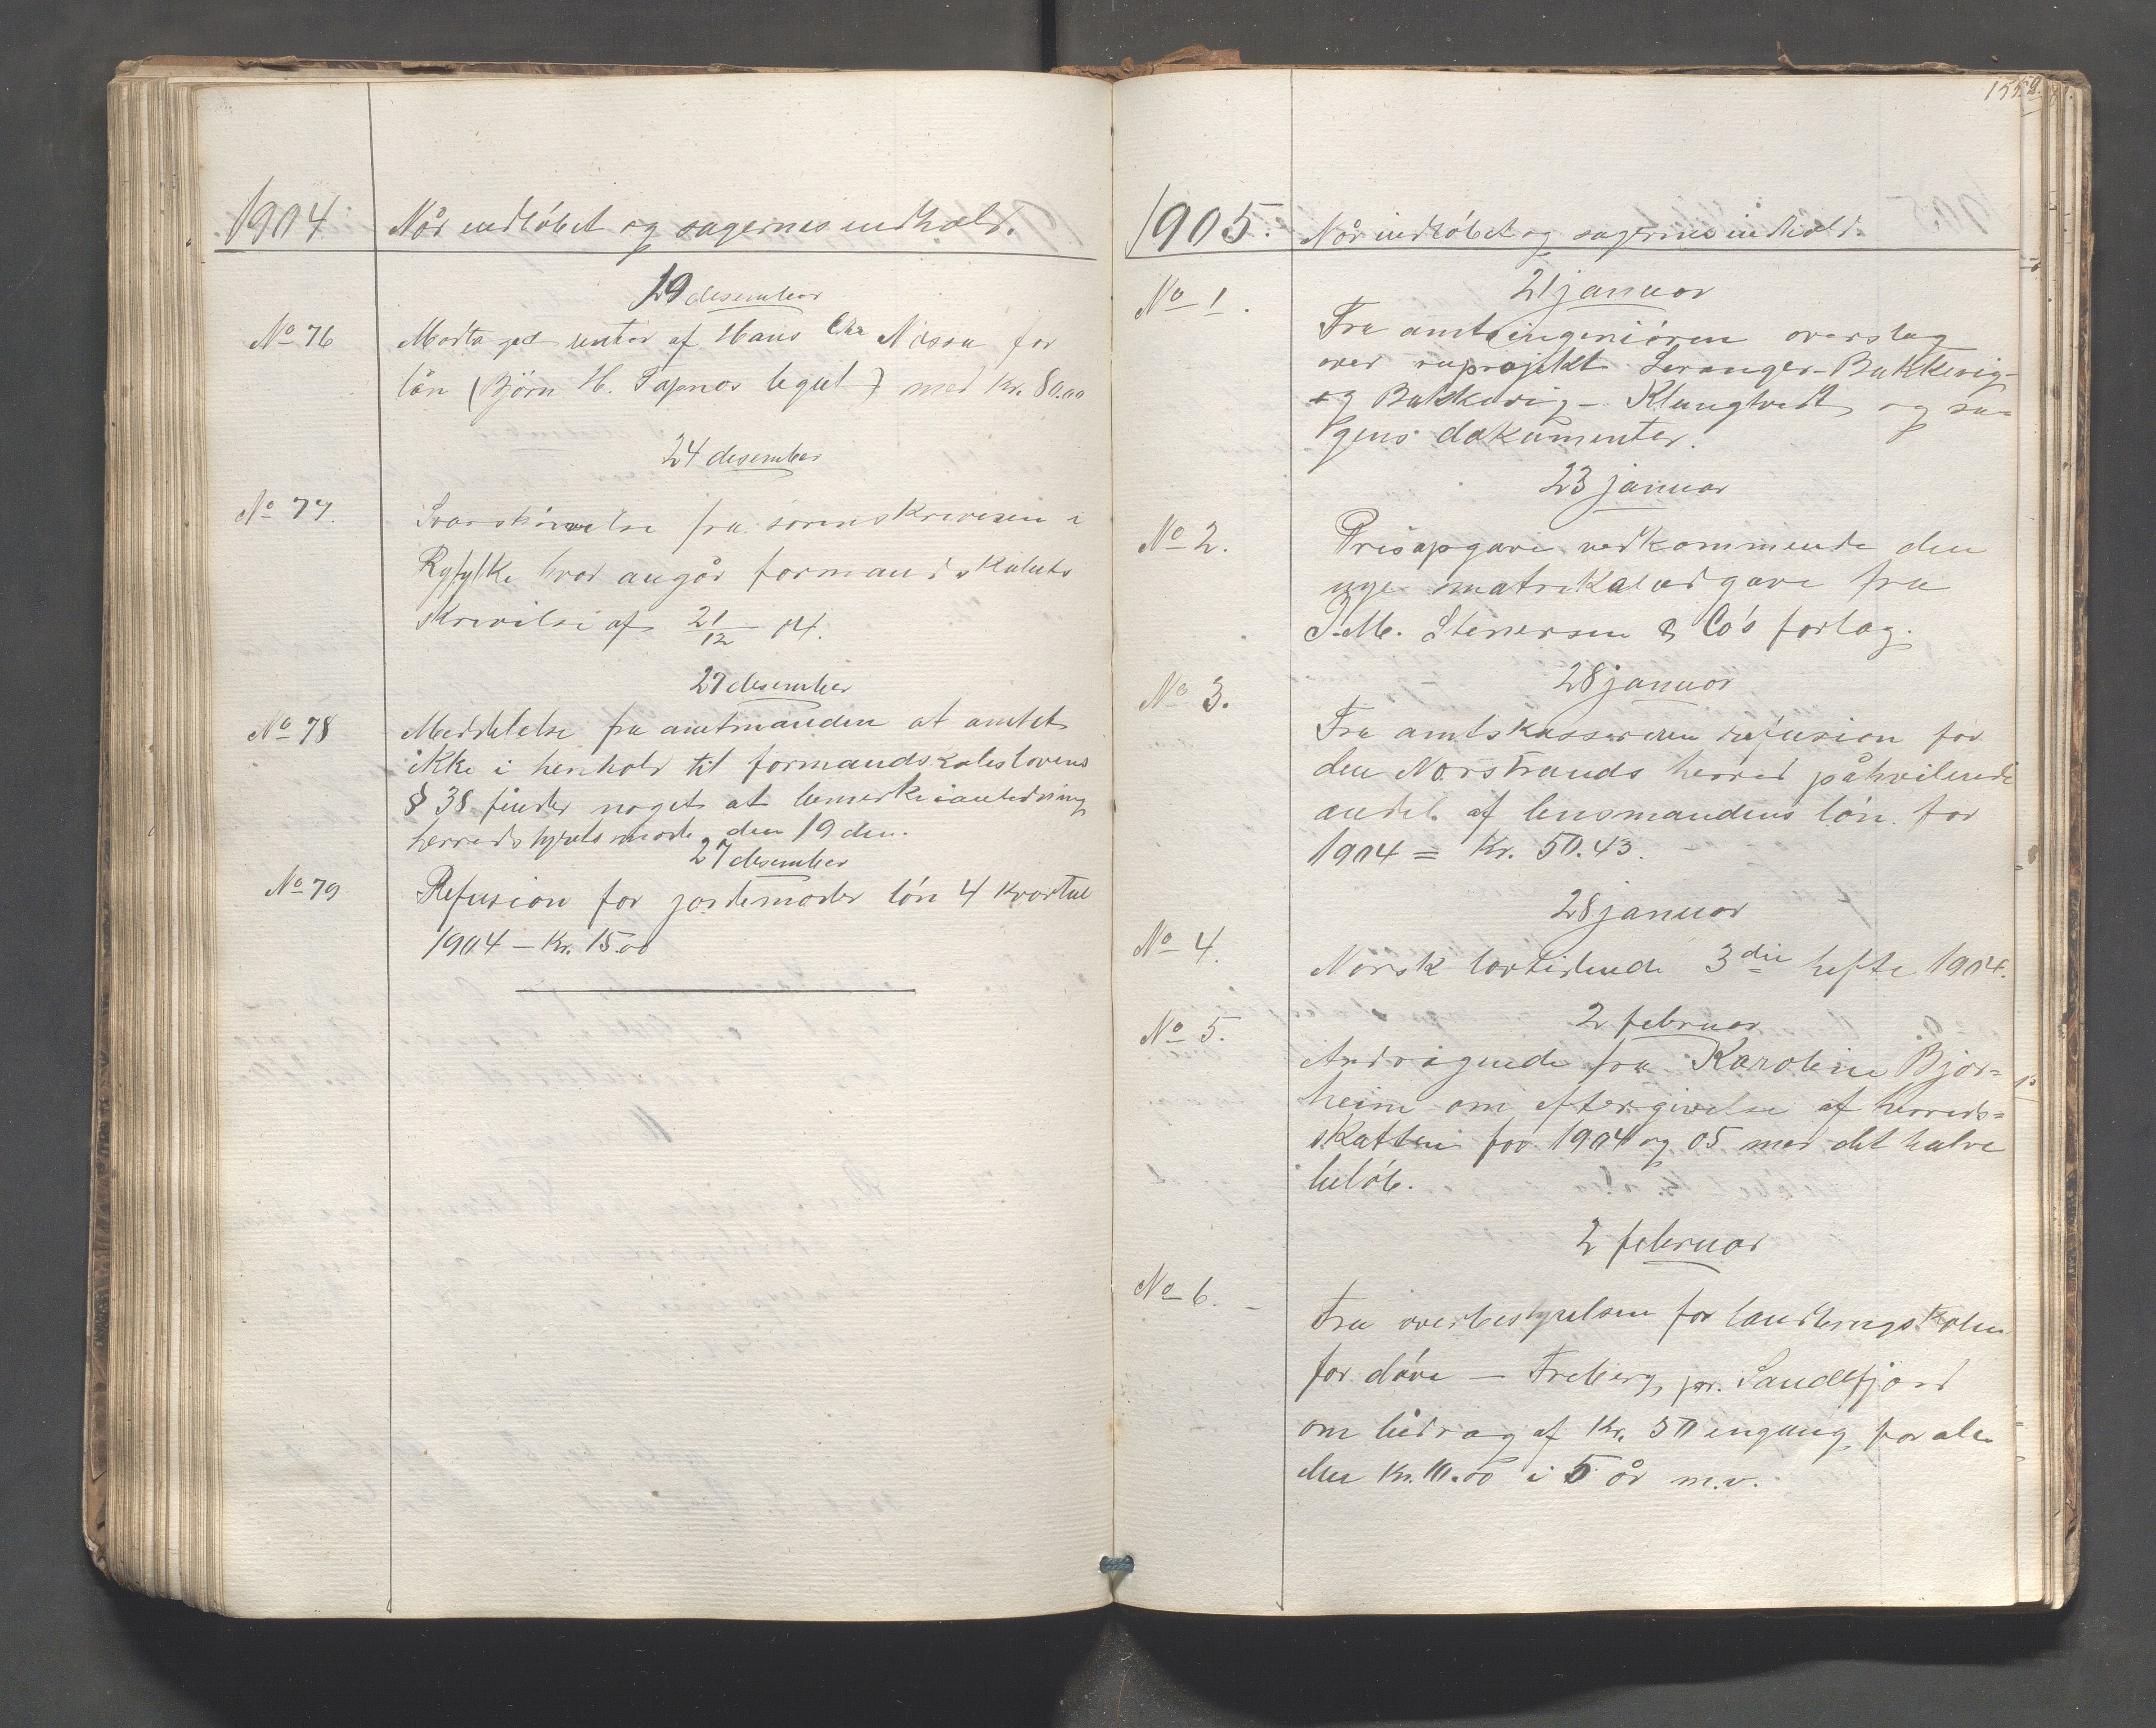 1904 Når indløbet og sagernes indhold.
19 desember
No 76 Mottaget renter af Hans Chr Nissa for
lån (Bjørn H. legat) med Kr. 80.00
24 desember
No 77. Svarskrivelse fra sorenskriveren i
Ryfylke hvad angår formandskabets
skrivelse af 21/12 04.
27 desember
No 78 Meddelelse fra amtmanden at amtet
ikke i henhold til formandskabslovens
§ 38 finder noget at bemerke i anledning
herredstyrets møde den 19 den.
27 desember
No 79 Refusion for jordemoder løn 4 kvartal
1904 – Kr. 15.00
1905. Når indløbet og sagernes indhold.
21 januar
No 1. Fra amtsingeniøren overslag
over veiprojekt Leranger-Bakkevig
og Bakkevig – Klungtvedt og sa-
gens dokumenter.
23 januar
No 2. Prisopgave vedkommende den
nye matrikeludgave fra
J. M. Stenersen & Co's forlag.
28 januar
No 3. Fra amtskassereren refusion for
den Nerstrands herred påhvilende
andel af lensmandens løn for
1904 = Kr. 50.43.
28 januar
No 4. Norsk lovtidende 3die hefte 1904.
2 februar
No 5. Andragende fra Karoline Bjør=
heim om eftergivelse af herreds=
skatten for 1904 og 05 med det halve
beløb.
2 februar
No 6. Fra overbestyrelsen for landbrugskolen
for døve – Freberg, pr. Sandefjord
om bidrag af Kr. 50 engang for ale
eller Kr. 10.00 i 5 år m.v.